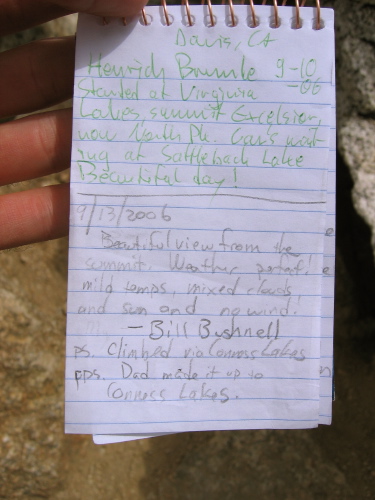 Davis, CA
Henrich Brumle 9-10
-06
Started at Virginia
Lakes, summit Excelsior,
now North Pk. Car's wait-
ing at Saddleback Lake
Beautiful day!
9/13/2006
Beautiful view from the
summit. Weather
mild temps, mixed clouds
and sun and no wind!
- Bill Bushnell
ps. Climbed via Conness Lakes
pps. Dad made it up to
Conness Lakes.